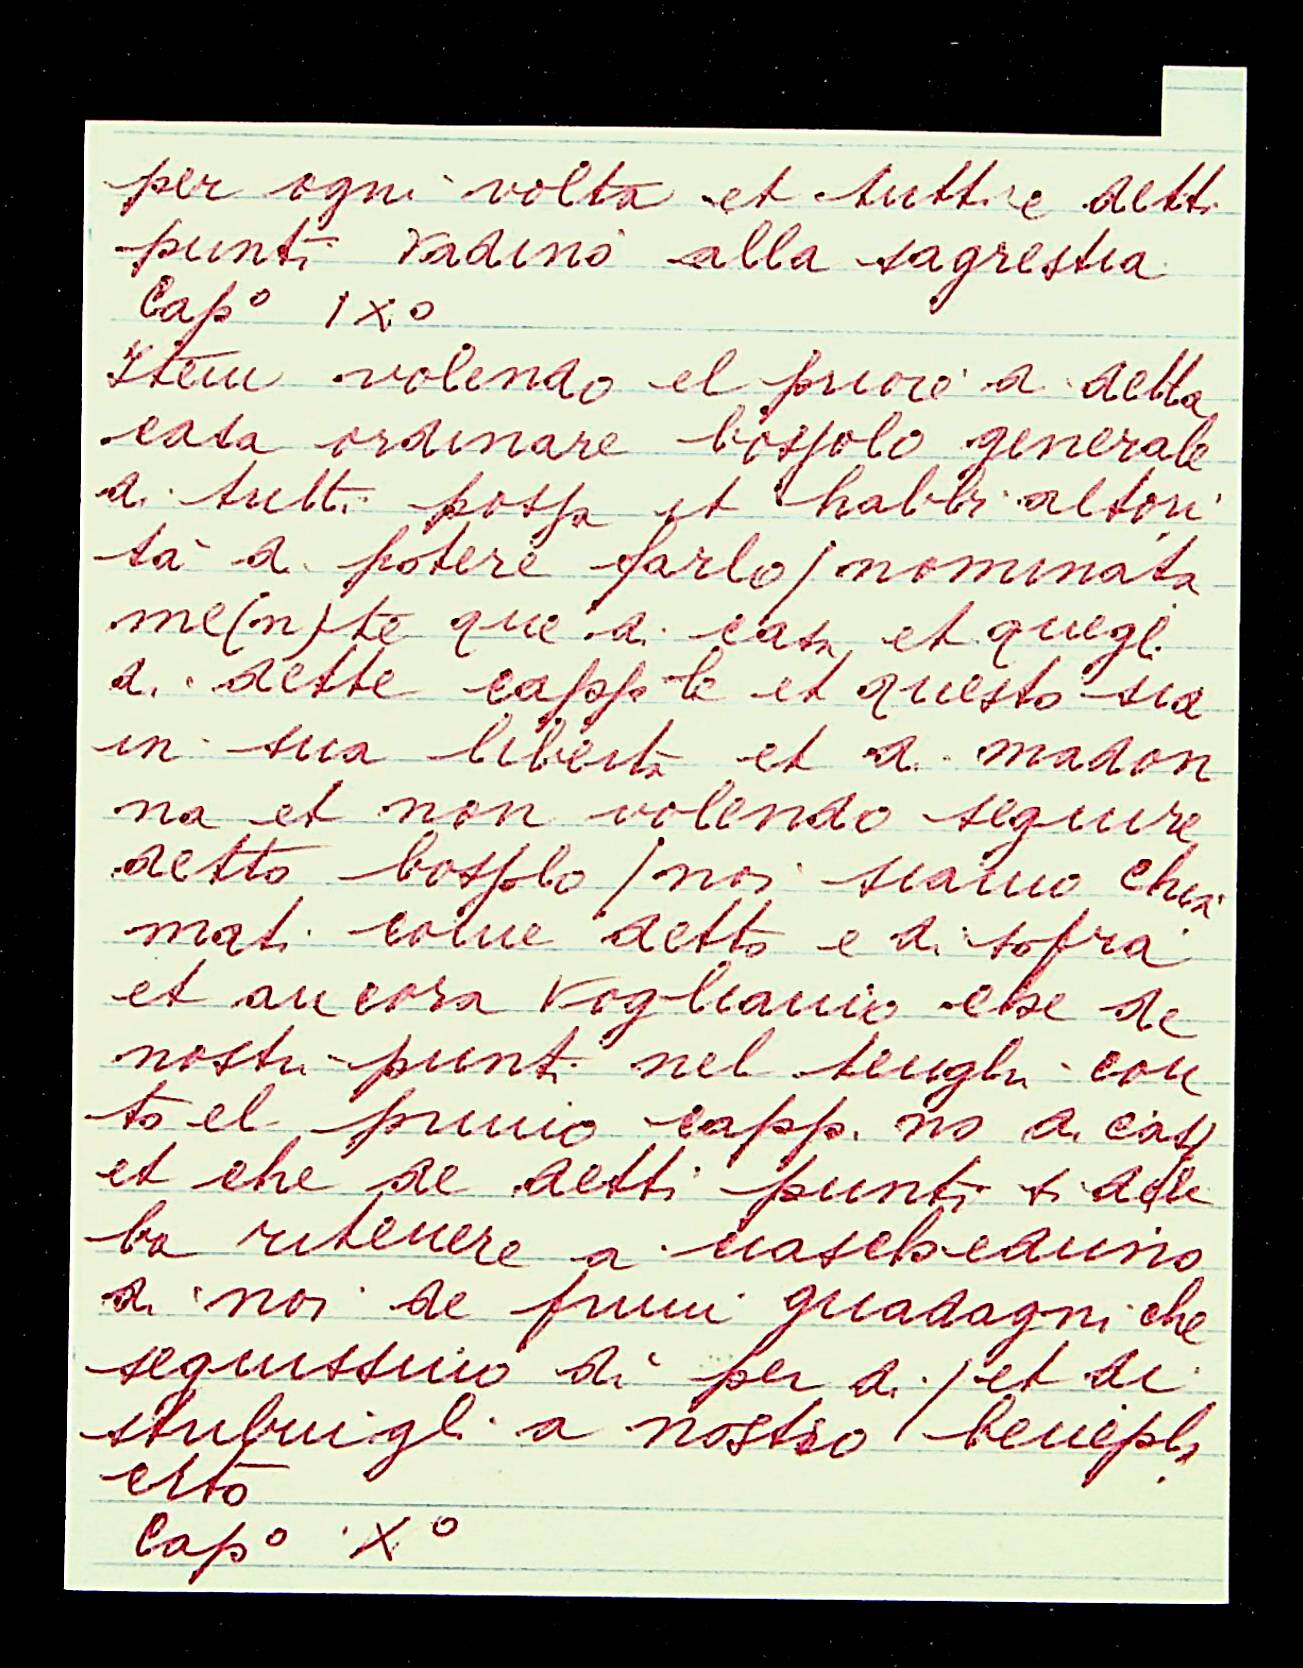 per ogni volta et tutti e detti
punti vadino alla sagrestia
Cap° IX°
Item volendo el priore di detta
casa ordinare bossolo generale
di tutti possa et habbi altori
tà di potere farlo / nominata
me(n)te que di casa et quegli
di dette capp le et questo sia
in sua libertà et di madon
na et non volendo seguire
detto bossolo / noi siamo chia
mati come detto e di sopra
et ancora vogliamo che de
nostri punti nel tenghi con
to el primo capp. no di casa
et che de detti punti si deb
ba ritenere a uascheduno
di noi de primi guadagni che
seguissino dì per dì / et di
stribuirgli a nostro beneplа
cito
Cap° X°